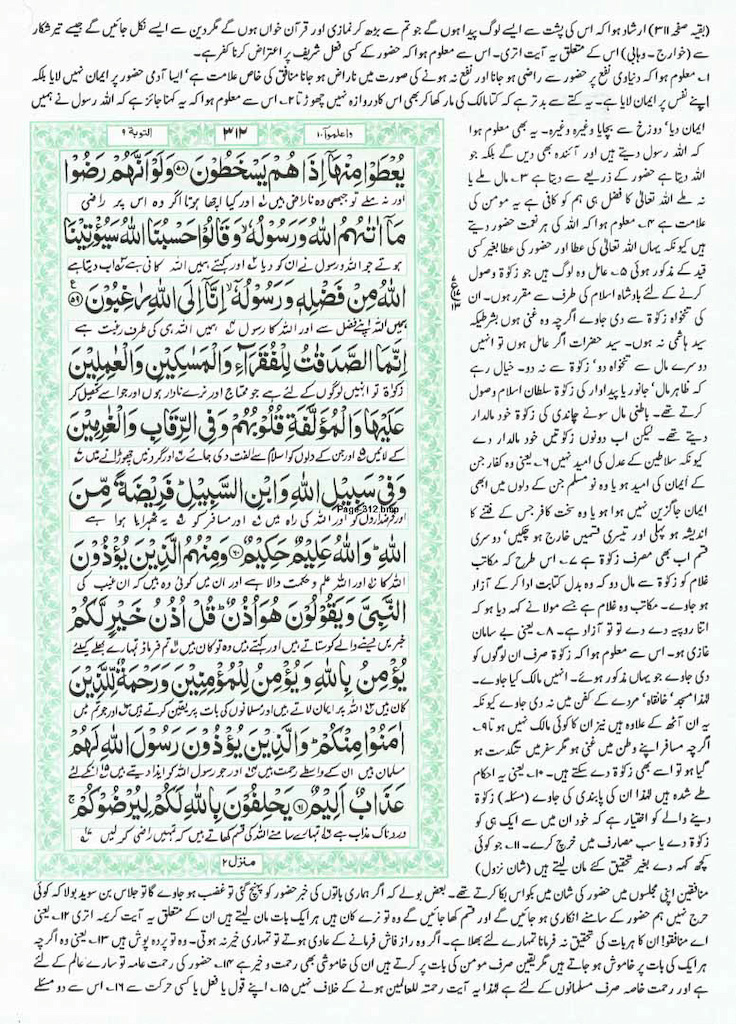 (بقیہ صفحہ ۳۱۱) ارشاد ہوا کہ اس کی پشت سے ایسے لوگ پیدا ہوں گے جو تم سے بڑھ کر نمازی اور قرآن خواں ہوں گے مگر دین سے ایسے نکل جائیں گے جیسے تیر شکار
سے (خوارج ۔ وہابی) اس کے متعلق یہ آیت اتری۔ اس سے معلوم ہوا کہ حضور کے کسی فعل شریف پر اعتراض کرنا کفر ہے۔
۱۔ معلوم ہوا کہ دنیاوی نفع پر حضور سے راضی ہو جانا اور نفع نہ ہونے کی صورت میں ناراض ہو جانا منافق کی خاص علامت ہے' ایسا آدمی حضور پر ایمان نہیں لایا بلکہ
اپنے نفس پر ایمان لایا ہے۔ یہ کتے سے بدتر ہے کہ کتا مالک کی مار کھا کر بھی اس کا دروازہ نہیں چھوڑتا ۲۔ اس سے معلوم ہوا کہ یہ کہنا جائز ہے کہ اللہ رسول نے ہمیں
ایمان دیا' دوزخ سے بچایا وغیرہ وغیرہ۔ یہ بھی معلوم ہوا
کہ اللہ رسول دیتے ہیں اور آئندہ بھی دیں گے بلکہ جو
اللہ دیتا ہے حضور کے ذریعے سے دیتا ہے ۳۔ مال ملے یا
نہ ملے اللہ تعالیٰ کا فضل ہی ہم کو کافی ہے یہ مومن کی
علامت ہے ۴۔ معلوم ہوا کہ اللہ کی ہر نعمت حضور دیتے
ہیں کیونکہ یہاں اللہ تعالیٰ کی عطا اور حضور کی عطا بغیر کسی
قید کے مذکور ہوئی ۵۔ عامل وہ لوگ ہیں جو زکوٰۃ وصول
کرنے کے لئے بادشاہ اسلام کی طرف سے مقرر ہوں۔ ان
کی تنخواہ زکوٰۃ سے دی جاوے اگرچہ وہ غنی ہوں بشرطیکہ
سید ہاشمی نہ ہوں۔ سید حضرات اگر عامل ہوں تو انہیں
دوسرے مال سے تنخواہ دو' زکوٰۃ سے نہ دو۔ خیال رہے
کہ ظاہر مال' جانور یا پیداوار کی زکوٰۃ سلطان اسلام وصول
کرتے تھے۔ باطنی مال سونے چاندی کی زکوٰۃ خود مالدار
دیتے تھے۔ لیکن اب دونوں زکوٰتیں خود مالدار دے
کیونکہ سلاطین کے عدل کی امید نہیں ۶۔ یعنی وہ کفار جن
کے ایمان کی امید ہو یا وہ نو مسلم جن کے دلوں میں ابھی
ایمان جاگزین نہیں ہوا ہو یا وہ سخت کافر جس کے فتنے کا
اندیشہ ہو پہلی اور تیسری قسمیں خارج ہو چکیں' دوسری
قسم اب بھی مصرف زکوٰۃ ہے ۷۔ اس طرح کہ مکاتب
غلام کو زکوٰۃ سے مال دو کہ وہ بدل کتابت ادا کر کے آزاد
ہو جاوے۔ مکاتب وہ غلام ہے جسے مولا نے کہہ دیا ہو کہ
اتنا روپیہ دے دے تو تو آزاد ہے۔ ۸۔ یعنی بے سامان
غازی ہو۔ اس سے معلوم ہوا کہ زکوٰۃ صرف ان لوگوں کو
دی جاوے جو یہاں مذکور ہوئے۔ انہیں مالک کیا جاوے۔
لہٰذا مسجد' خانقاہ' مردے کے کفن میں نہ دی جاوے کیونکہ
یہ ان آٹھ کے علاوہ ہیں نیز ان کا کوئی مالک نہیں ہوتا ۹۔
اگرچہ مسافر اپنے وطن میں غنی ہو مگر سفر میں تنگدست ہو
گیا ہو تو اسے بھی زکوٰۃ دے سکتے ہیں۔ ۱۰۔ یعنی یہ احکام
طے شدہ ہیں لہٰذا ان کی پابندی کی جاوے (مسئلہ) زکوٰۃ
دینے والے کو اختیار ہے کہ خود ان میں سے ایک ہی کو
زکوٰۃ دے یا سب مصارف میں خرچ کرے۔ ۱۱۔ جو کوئی
کچھ کہہ دے بغیر تحقیق کئے مان لیتے ہیں (شان نزول)
التوبۃ ۹
۳۱۲
واعلموا ۱۰
يُعْطَوْا مِنْهَآ اِذَا هُمْ يَسْخَطُوْنَ ﴿۵۸﴾ وَلَوْ اَنَّهُمْ رَضُوْا
اور نہ ملے تو جبھی وہ ناراض ہیں اور کیا اچھا ہوتا اگر وہ اس پر راضی
مَآ اٰتٰىهُمُ اللّٰهُ وَرَسُوْلُهٗ ۙ وَقَالُوْا حَسْبُنَا اللّٰهُ سَيُؤْتِيْنَا
ہوتے جو اللہ و رسول نے ان کو دیا اور کہتے ہمیں اللہ کافی ہے اب دیتا ہے
اللّٰهُ مِنْ فَضْلِهٖ وَرَسُوْلُهٗٓ ۙ اِنَّآ اِلَى اللّٰهِ رٰغِبُوْنَ ﴿۵۹﴾
ہمیں اللہ اپنے فضل سے اور اللہ کا رسول ہمیں اللہ ہی کی طرف رغبت ہے
اِنَّمَا الصَّدَقٰتُ لِلْفُقَرَآءِ وَالْمَسٰكِيْنِ وَالْعٰمِلِيْنَ
زکوٰۃ تو انہیں لوگوں کے لئے ہے جو محتاج اور نرے نادار ہوں اور جو اسے تحصیل کر
عَلَيْهَا وَالْمُؤَلَّفَةِ قُلُوْبُهُمْ وَفِي الرِّقَابِ وَالْغٰرِمِيْنَ
کے لائیں اور جن کے دلوں کو اسلام سے الفت دی جائے اور گردنیں چھوڑانے میں
وَفِيْ سَبِيْلِ اللّٰهِ وَابْنِ السَّبِيْلِ ۗ فَرِيْضَةً مِّنَ
Page-312.bmp
اور قرضداروں کو اور اللہ کی راہ میں اور مسافر کو یہ ٹھہرایا ہوا ہے
اللّٰهِ ۗ وَاللّٰهُ عَلِيْمٌ حَكِيْمٌ ﴿۶۰﴾ وَمِنْهُمُ الَّذِيْنَ يُؤْذُوْنَ
اللہ کا اور اللہ علم و حکمت والا ہے اور ان میں کوئی وہ ہیں کہ ان غیب کی
النَّبِيَّ وَيَقُوْلُوْنَ هُوَ اُذُنٌ ۗ قُلْ اُذُنُ خَيْرٍ لَّكُمْ
خبریں دینے والے کو ستاتے ہیں اور کہتے ہیں وہ تو کان ہیں تم فرماؤ تمہارے بھلے کیلئے
يُؤْمِنُ بِاللّٰهِ وَيُؤْمِنُ لِلْمُؤْمِنِيْنَ وَرَحْمَةٌ لِّلَّذِيْنَ
کان ہیں اللہ پر ایمان لاتے ہیں اور مسلمانوں کی بات پر یقین کرتے ہیں اور جو تم میں
اٰمَنُوْا مِنْكُمْ ۗ وَالَّذِيْنَ يُؤْذُوْنَ رَسُوْلَ اللّٰهِ لَهُمْ
مسلمان ہیں ان کے واسطے رحمت ہیں اور جو رسول اللہ کو ایذا دیتے ہیں انکے لئے
عَذَابٌ اَلِيْمٌ ﴿۶۱﴾ يَحْلِفُوْنَ بِاللّٰهِ لَكُمْ لِيُرْضُوْكُمْ
دردناک عذاب ہے تمہارے سامنے اللہ کی قسم کھاتے ہیں کہ تمہیں راضی کر لیں
منزل ۲
منافقین اپنی مجلسوں میں حضور کی شان میں بکواس بکا کرتے تھے۔ بعض بولے کہ اگر ہماری باتوں کی خبر حضور کو پہنچ گئی تو غضب ہو جاوے گا تو جلاس بن سوید بولا کہ کوئی
حرج نہیں ہم حضور کے سامنے انکاری ہو جائیں گے اور قسم کھا جائیں گے وہ تو نرے کان ہیں ہر ایک بات مان لیتے ہیں ان کے متعلق یہ آیت کریمہ اتری ۱۲۔ یعنی
اے منافقو! ان کا ہر بات کی تحقیق نہ فرمانا تمہارے لئے بھلا ہے۔ اگر وہ راز فاش فرمانے کے عادی ہوتے تو تمہاری خیر نہ ہوتی۔ وہ تو پردہ پوش ہیں ۱۳۔ یعنی وہ اگرچہ
ہر ایک کی بات پر خاموش ہو جاتے ہیں مگر یقین صرف مومن کی بات پر کرتے ہیں ان کی خاموشی بھی رحمت و خیر ہے ۱۴۔ حضور کی رحمت عامہ تو سارے عالم کے لئے
ہے اور رحمت خاصہ صرف مسلمانوں کے لئے ہے لہٰذا یہ آیت رحمتہ للعالمین ہونے کے خلاف نہیں ۱۵۔ اپنے قول یا فعل یا کسی حرکت سے ۱۶۔ اس سے دو مسئلے